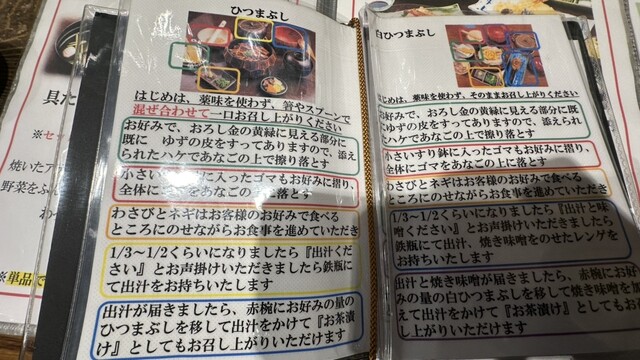 ひつまぶし
はじめは、薬味を使わず、箸やスプーンで
混ぜ合わせて一口お召し上がりください
お好みで、おろし金の黄緑に見える部分に
既に ゆずの皮をすってありますので、添え
られたハケであなごの上で擦り落とす
小さいすり鉢に入ったゴマもお好みで摺り、
全体にあなごの上に落とす
わさびとネギはお客様のお好みで食べる
ところにのせながらお食事を進めていただき
1/3〜1/2くらいになりましたら『出汁くだ
さい』とお声掛けいただきましたら鉄瓶に
て出汁をお持ちいたします
出汁が届きましたら、赤椀にお好みの量の
ひつまぶしを移して出汁をかけて『お茶漬
け』としてもお召し上がりいただけます
白ひつまぶし
はじめは、薬味を使わず、そのままお召し上がりください
お好みで、おろし金の黄緑に見える部分に既
にゆずの皮をすってありますので、添えられ
たハケであなごの上で擦り落とす
小さいすり鉢に入ったゴマもお好みで摺り、
全体にあなごの上に落とす
わさびとネギはお客様のお好みで食べる
ところにのせながらお食事を進めていただき
1/3〜1/2くらいになりましたら『出汁と味
噌ください』とお声掛けいただきましたら
鉄瓶にて出汁、焼き味噌をのせたレンゲを
お持ちいたします
出汁と焼き味噌が届きましたら、赤椀にお好
みの量の白ひつまぶしを移して焼き味噌を加
えて出汁をかけて『お茶漬け』としてもお召
し上がりいただけます
具た
※セッ
焼いたア
野菜をふ
※単品で